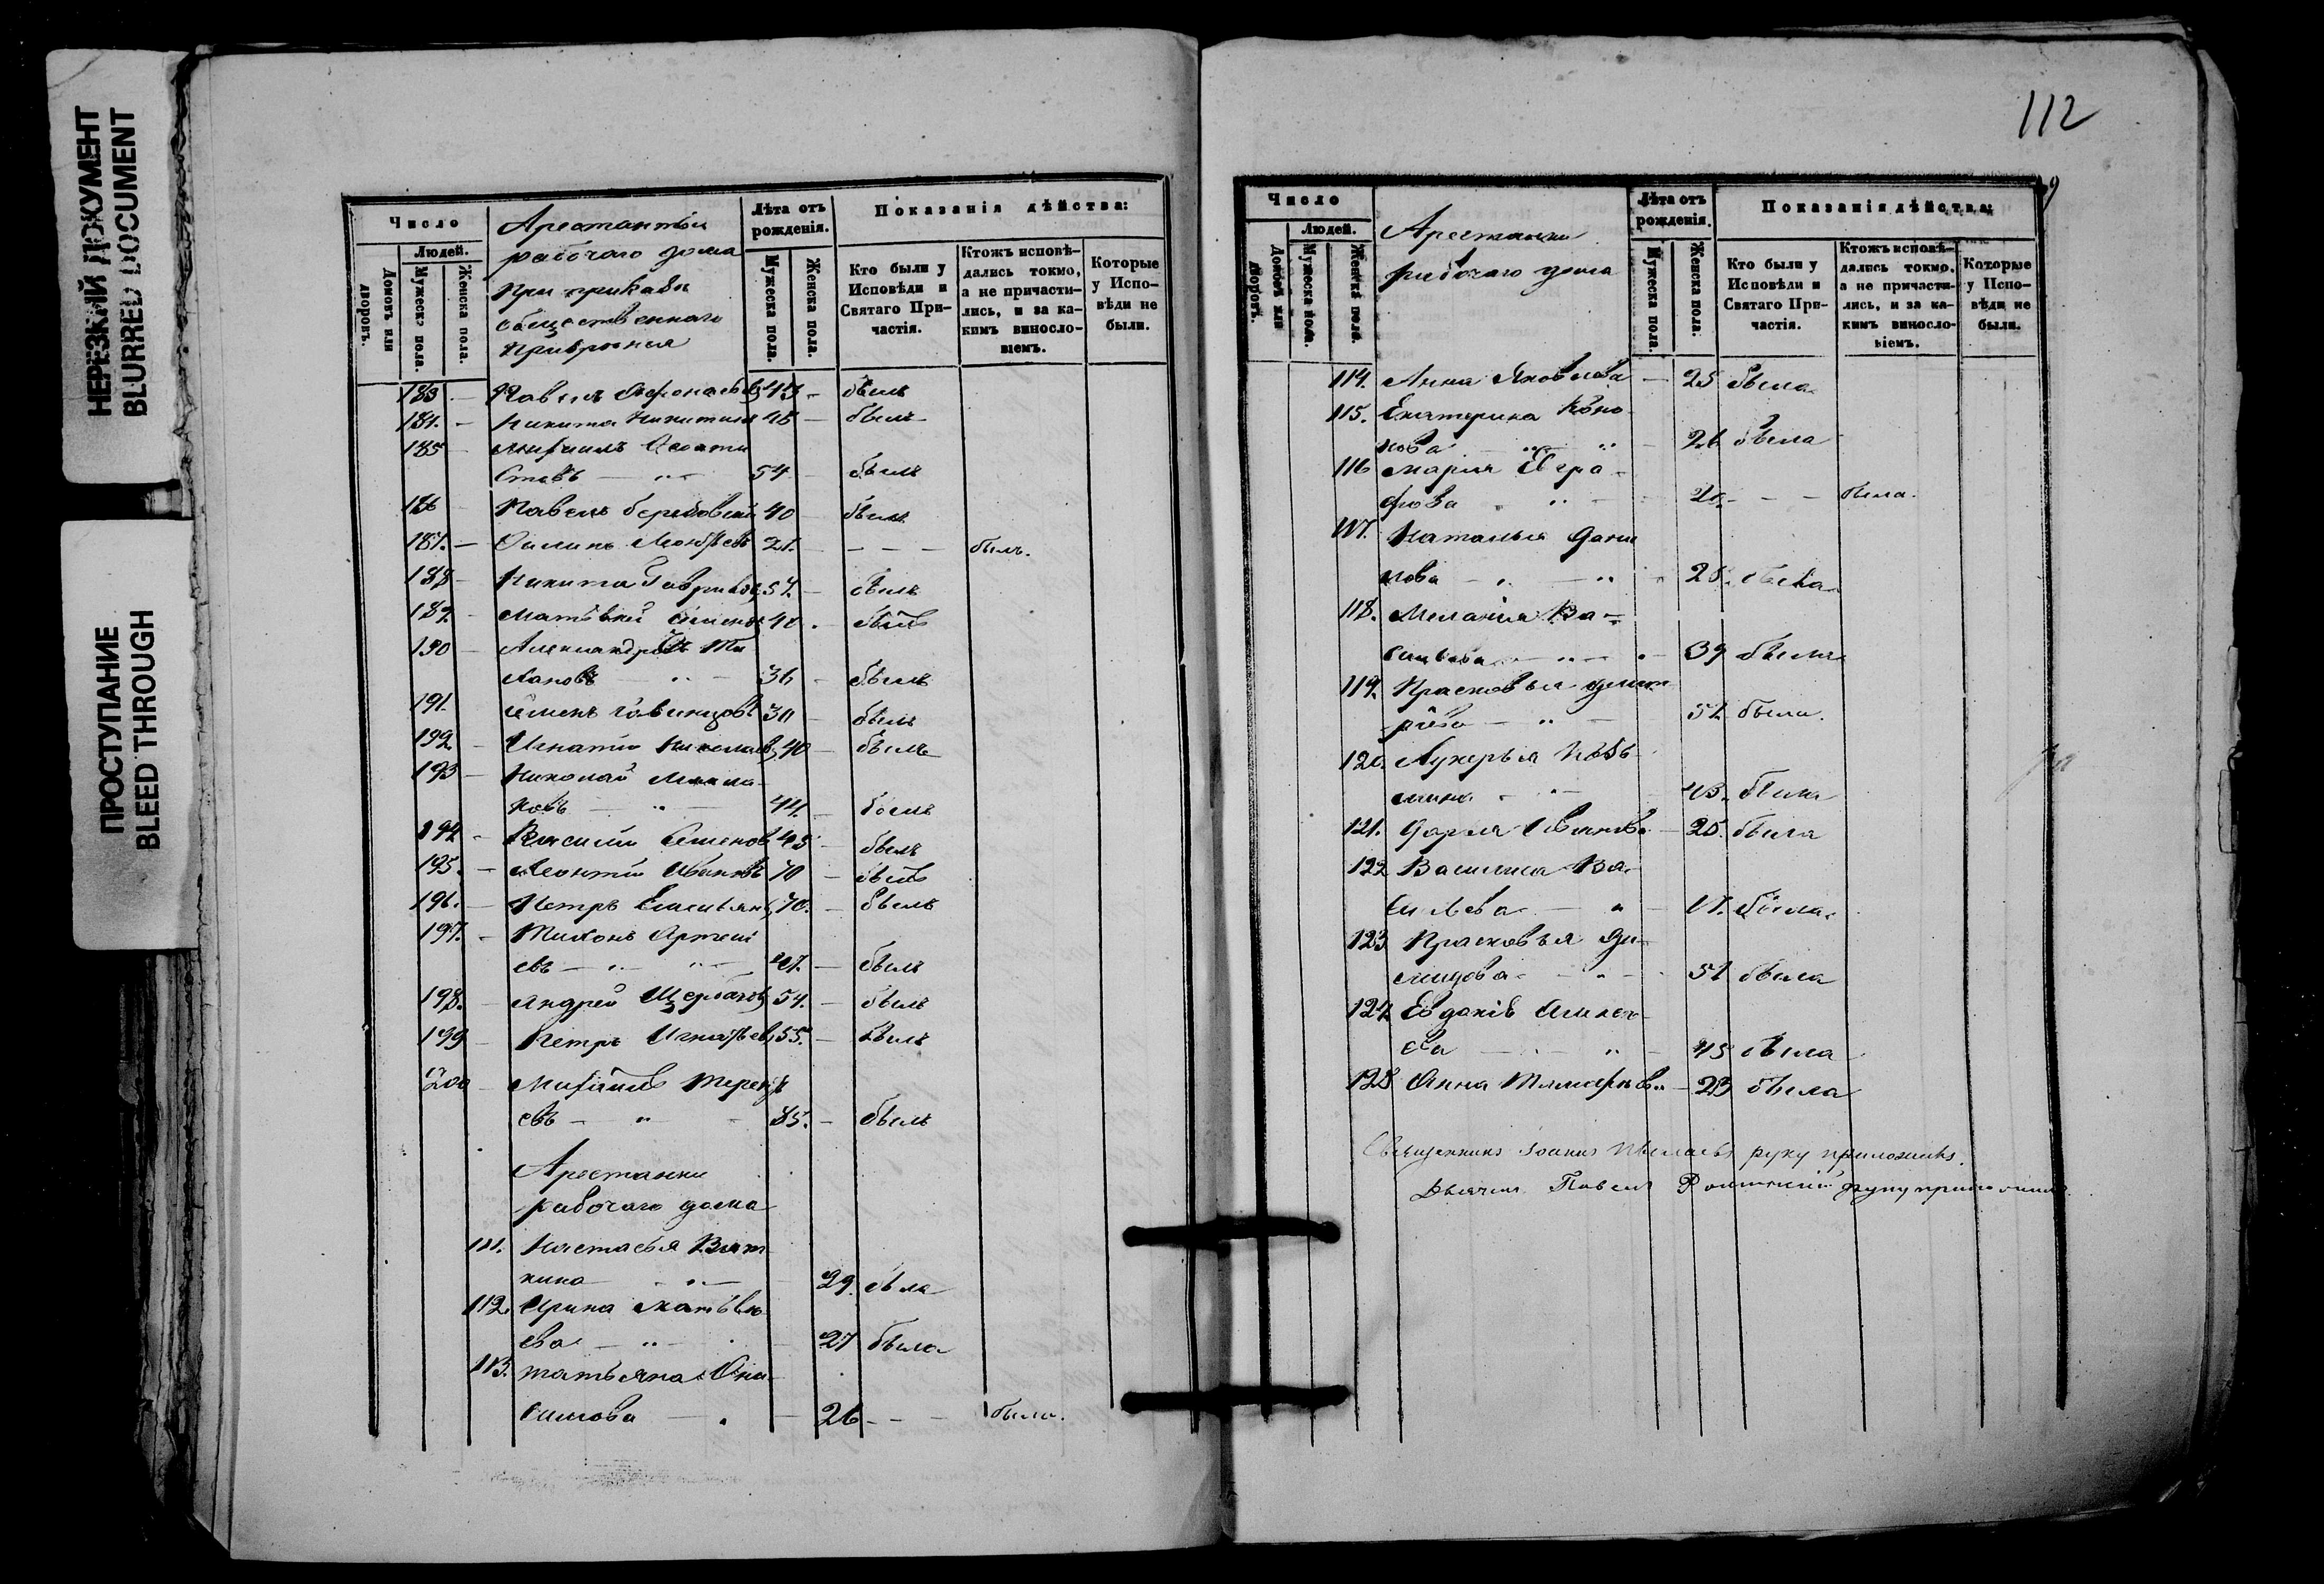 НЕРЕЗКИЙ ДОКУМЕНТ
BLURRED DOCUMENT
ПРОСТУПАНИЕ
BLEED THROUGH
Число
Людей.
Домовъ или дворовъ.
Мужеска пола.
Женска пола.
Арестанты
рабочаго дома
при приказѣ
общественнаго
призрѣнія
Лѣта отъ рожденія.
Мужеска пола.
Женска пола.
Показанія дѣйства:
Кто были у Исповѣди и Святаго Причастія.
Ктожъ исповѣдались токмо, а не причастились, и за какимъ винословіемъ.
Которые у Исповѣди не были.
183 — Павелъ 43 — былъ
184. — Никита Никитинъ 45 — былъ
185 — Михаилъ
54 — былъ
186 — Павелъ 40 — былъ
187. — Леонтьевъ 21. — — — былъ.
188 — Никита Гавриловъ 57. — былъ
189. — Матвѣй Семеновъ 40 — былъ
190 — Александръ
36 — былъ
191. Семенъ 30 — былъ
192. — Игнатій 40 — былъ
193 — Николай
новъ — " — 44. — былъ
194 — Василій Семеновъ 45 — былъ
195. — Леонтій Ивановъ 70 — былъ
196. — Петръ 70. — былъ
197. — Тихонъ Артемі
евъ — " — " — 47. — былъ
198. — Андрей Щербаковъ 54. — былъ
199 — Петръ Игнатьевъ 55. — былъ
200 — Михаилъ Терентье
евъ — " — 35. — былъ
Арестанки
рабочаго дома
111. Настасья Вят
кина — " — 29. была
112. Ирина Матвѣе
ева — " — 27 была
113. Татьяна Они
симова — 26 — — — была.
112
Число
Людей.
Домовъ или дворовъ.
Мужеска пола.
Женска пола.
Арестанки
рабочаго дома
Лѣта отъ рожденія.
Мужеска пола.
Женска пола.
Показанія дѣйства:
Кто были у Исповѣди и Святаго Причастія.
Ктожъ исповѣдались токмо, а не причастились, и за какимъ винословіемъ.
Которые у Исповѣди не были.
114. Анна Яковлева — 25 была
115. Екатерина Коно
нова — " — 26 была
116 Марія Егра
фова — " — 20 — — — была.
117. Наталья Дани
лова — " — " 28. была
118. Меланія Ва-
сильева — " — 39 была
119. Прасковья Димит
ріева — " — 52 была.
120. Лукерья Козь
мина — " — 43. была
121. Дарья Иванова — 25. была
122 Василиса Ва-
сильева — " — 17. была
123 Прасковья Де
мидова — " — 51 была
124 Евдокія Алексѣ
ева — " — 45 была
125 Анна — 23 была
Священникъ Іоаннъ руку приложилъ.
Дьячекъ Павелъ руку приложилъ